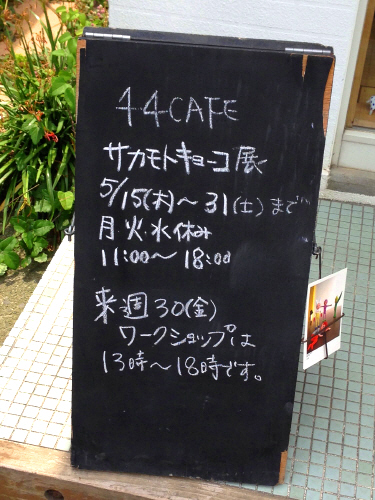 44CAFE
サカモトキョーコ展
5/15(木)～31(土)まで
月火・水休み
11:00～18:00
来週30(金)
ワークショップは
13時～18時です。